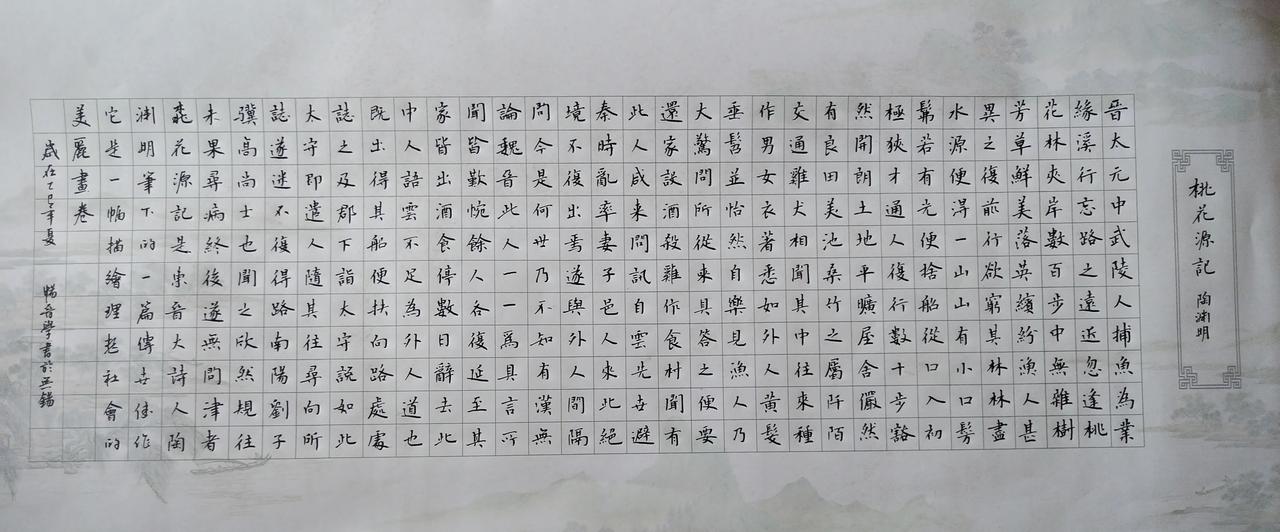 桃花源記 陶渊明
晉太元中武陵人捕魚為業
緣溪行忘路之遠近忽逢桃
花林夾岸數百步中無雜樹
芳草鮮美落英繽紛漁人甚
異之復前行欲窮其林林盡
水源便得一山山有小口髣
髴若有光便捨船從口入初
極狹才通人復行數十步豁
然開朗土地平曠屋舍儼然
有良田美池桑竹之屬阡陌
交通雞犬相聞其中往來種
作男女衣著悉如外人黃髮
垂髫並怡然自樂見漁人乃
大驚問所從來具答之便要
還家設酒殺雞作食村聞有
此人咸来問訊自雲先世避
秦時亂率妻子邑人來此絕
境不復出焉遂與外人間隔
問今是何世乃不知有漢無
論魏晉此人一一爲具言所
聞皆歎惋餘人各復延至其
家皆出酒食停數日辭去此
中人語雲不足為外人道也
既出得其船便扶向路處處
誌之及郡下詣太守説如此
太守即遣人隨其往尋向所
誌遂迷不復得路南陽劉子
驥高尚士也聞之欣然規往
未果尋病終後遂無問津者
桃花源記是東晉大詩人陶
渊明筆下的一篇傳世佳作
它是一幅描繪理想社會的
美麗畫卷
歲在乙巳年夏 音學書於无錫